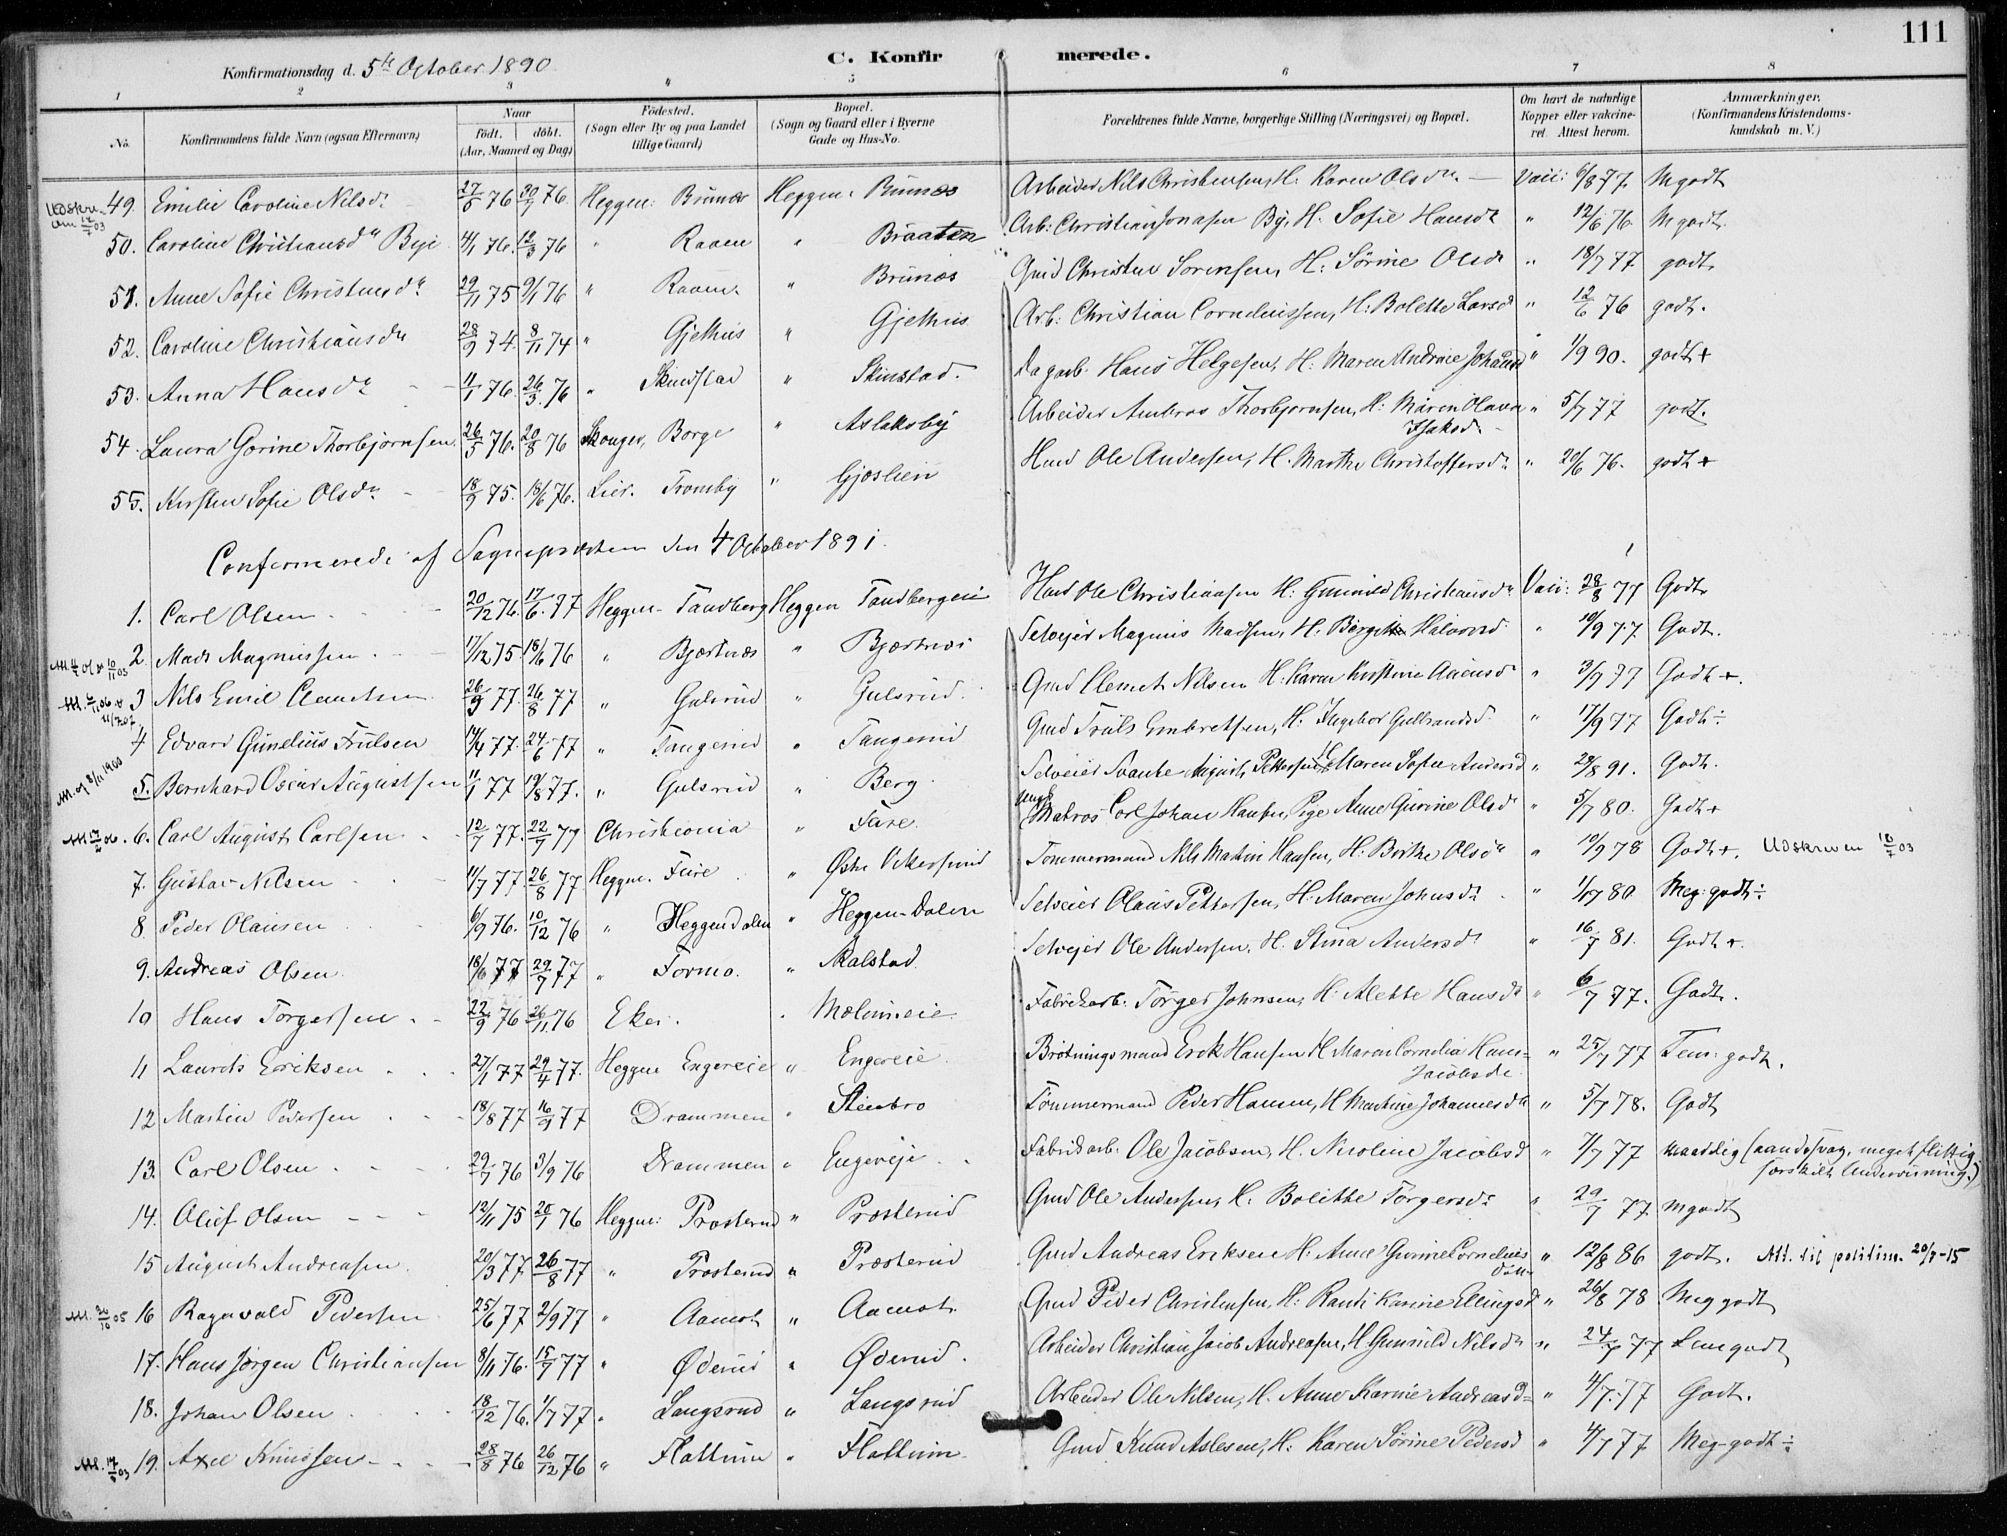 111
C. Konfirmerede.
Konfirmationsdag d. 5te October 1890
1 2 3 4 5 6 7 8
No. Konfirmandens fulde Navn (ogsaa Efternavn) Naar født. døbt. (Aar, Maaned og Dag) Fødested. (Sogn eller By og paa Landet tillige Gaard) Bopæl. (Sogn og Gaard eller i Byerne Gade og Hus-No. Forældrenes fulde Navne, borgerlige Stilling (Næringsvei) og Bopæl. Om havt de naturlige Kopper eller vakcineret. Attest herom. Anmærkninger. (Konfirmandens Kristendomskundskab m. V.)
49. Emilie Caroline Nilsdr 76 76. Heggen: Brunæs Heggen: Brunæs Arbeider Nils Christensen, H. Karen Olsdr. — Vaci: 6/8 77. Mgodt
50. Caroline Christiansdr Bye 4/1 76. 12/3 76 " Raaen " Braaten Arb: Christian Jonasen By, H. Sofie Hansdr " 12/6 76. Mgodt.
51. Anne Sofie Christensdr 29/11 75 9/1 76 " Raaen. " Brunæs Gmd Christen Sørensen, H: Sørine Olsdr " 18/7 77 godt
52. Caroline Christiansdr 28/9 74. 8/11 74 " Gjethus " Gjethus Arb: Christian Corneliussen, H: Bolette Larsd " 12/6 76 godt.
53. Anna Hansdr 11/1 76. 26/3. 76 " Skinstad " Skinstad. Dagarb. Hans Helgesen, H. Maren Andrine Johansd " 1/9 90. godt +
54. Laura Gorine Thorbjørnsen 26/5 76. 20/8 76 Skouger, Borge " Aslaksby Arbeider Ambros Thorbjørnsen, H: Maren Olava Isaksd. " 5/7 77 godt.
55. Kirsten Sofie Olsdr 18/9 75. 18/6 76. Lier. Tromsby " Gjøslien Hmd Ole Andersen, H. Marthe Christoffersdr " 20/6 76. godt +
Confirmerede af Sognepresten den 4 October 1891.
1. Carl Olsen 20/12 76. 17/6. 77 Heggen - Tandberg Heggen Tandbergeie Hmd Ole Christiansen H: Gunnild Christiansdr Vaci: 28/8 77 Godt
2. Mads Magnussen 17/12 75. 18/6 76 " Bjærtnæs " Bjærtnæs Selvejer Magnus Madsen, H. Birgitte Halvorsd. " 10/9 77 Godt.
3 Nils Emil Clemetsen 77. 26/8 77 " Gulsrud " Gulsrud. Gmd Clemet Nilsen H. Karen Kirstine " 3/9 77 Godt +.
4 Edvard Gunelius Trulsen 14/4 77. 24/6 77 " Tangerud " Tangerud Gmd Truls Embretsen, H. Ingebor Gulbrandsd. " 17/9 77 Godt ÷
5. Bernhard Oscar Augustsen 11/1 77 19/8 77. " Gulsrud " Berg. Selveier Svante August Pettersen, H. Maren Sofie Andersd " 29/8 91. Godt.
6. Carl August Carlsen. 12/7 77. 22/7 77 Christiania " Fure. Matros Carl Johan Hansen, Pige Anne Gurine Olsdr " 5/7 80. Godt +
7. Gustav Nilsen 11/7 77 26/8 77 Heggen. Fure " Østre Vikersund Tømmermand Nils Martin Hansen, H: Berthe Olsdr " 10/9 78 Godt +. Udskreven 16/7 03
8. Peder Olausen 6/9 76. 10/12 76 " Heggen Dalen " Heggen-Dalen Selveier Olaus Pettersen, H. Maren Johnsdr " 80 Meg: godt ÷
9. Andreas Olsen. 18/6 77 29/7 77 " Formo. " Skalstad Selvejer Ole Andersen. H. Stina Andersdr " 16/7 81. Godt +.
10 Hans Torgersen 22/9 76 26/11. 76 Eker. " Moelumeie. Fabrikarb: Torger Johnsen, H. Alette Hansdr " 6/7 77. Godt.
11 Laurits Eriksen 27/1 77 29/4 77. Heggen Engereie " Engereie Brøtningsmand Erik Hansen H Maren Cornelia Hans= Jacobsdr. " 25/7 77 Tem: godt.
12 Martin Pedersen 18/8 77 16/9 77 Drammen " Stenbro Tømmermand Peder Hansen, H Martine Johannesdr " 5/7 78. Godt
13. Carl Olsen 29/7 76 3/9 76 Drammen " Engereje Fabrikarb. Ole Jacobsen, H. Nicoline Jacobsd " 7/7 77 maadelig (aandssvag, meget flittig, særskilt Underviisning.)
14. Oluf Olsen 12/11 75 20/1 76 Heggen: Prosterud " Præsterud Gmd Ole Andersen, H: Bolette Torgersdr " 29/7 77 mgodt
15 August Andreasen. 20/3 77 26/8 77 " Prosterud " Præsterud Gmd Andreas Eriksen H: Anne Gurine Cornelius datt= " 12/8 86 godt. Att. til politim. 20/7-15
16 Ragnvald Pedersen 25/6 77 2/9 77 " Aamot " Aamot Gmd Peder Christensen, H: Randi Karine Ellingsd " 26/8 78 Meg godt
17. Hans Jørgen Christiansen 8/11 76. 15/7 77 " Øderud " Øderud. Arbeider Christian Jacob Andreasen, H Gunnild Nilsdr " 24/7 77 Tem godt
18. Johan Olsen 18/12 76. 1/7 77 " Langsrud " Langsrud Arbeider Ole Nilsen, H. Anne Karine Andreasd= " 4/7. 77 Godt.
19. Axel Knudsen 28/8 76 26/12 76 " Flattum " Flattum. Gmd Knud Aslesen, H: Karen Sørine Pedersd " 4/7 77 Meg-godt ÷